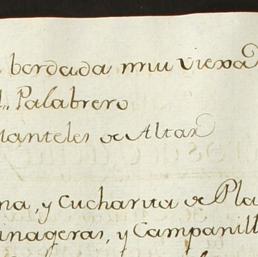 bordada mui viexa
Palabrero
Manteles de Altar
na, y Cucharita de Pla
nageras, y Campanill